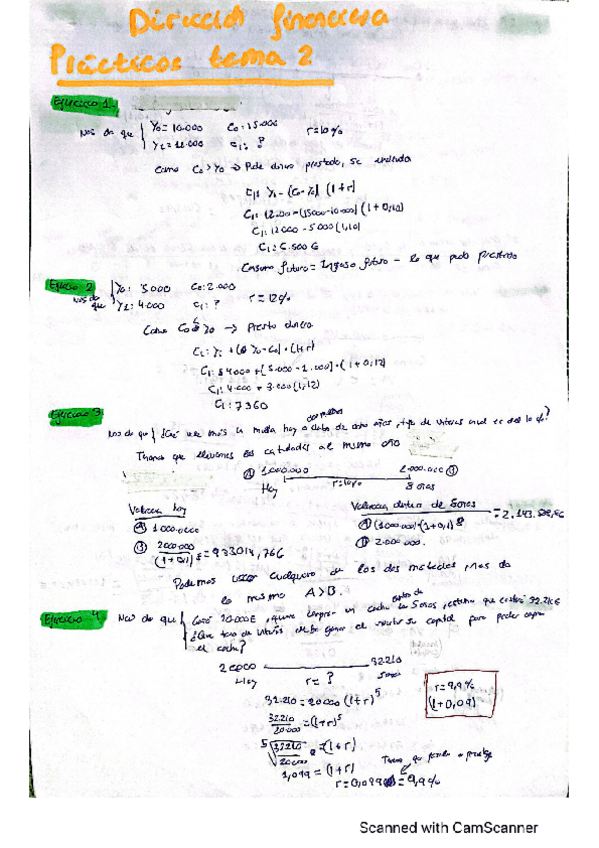 Dirección financiera
Prácticos tema 2
Ejercicio 1
Nos da que { Y0= 10.000 C0= 15.000 r=10%
Y1= 12.000 C1: ?
Como C0>Y0 → Pide dinero prestado, se endeuda
C1: Y1 - (C0-Y0) (1+r)
C1: 12.000-(15000-10.000) (1+0,10)
C1: 12000 - 5000 (1,10)
C1= 6.500 €
Consumo futuro = Ingreso futuro - lo que pido prestado
Ejercicio 2
Nos da que { Y0: 5.000 C0: 2.000 r= 12%
Y1: 4.000 C1: ?
Como C0 Y0 → Presto dinero
C1: Y1 + (Y0-C0) · (1+r)
(1+0,12)
C1: 4.000 + 3.000 (1,12)
C1: 7360
Ejercicio 3
Nos da que { ¿Qué vale más la mulla hoy o dentro de ocho años, tipo de interés anual es del 10%?
dos millones
Tenemos que llevarnos las cantidades al mismo año
Ⓐ 1.000.000 2.000.000 Ⓑ
Hoy r=10% 8 años
Valorar hoy
Ⓐ 1.000.000
Ⓑ 2000.000 / (1+0,1)8 = 933014,766
Valorar dentro de 8 años
Ⓐ (1000.000)·(1+0,1)8 = 2.143.588,86
Ⓑ 2.000.000.
Podemos usar cualquiera de los dos métodos, nos da
lo mismo A>B.
Ejercicio 4
Nos da que { 20.000€, quiere comprar un coche dentro de 5 años, estima que costará 32.210€
¿Que tasa de interés debe ganar el su capital para poder
el coche?
20000 32210
Hoy r= ? 5 años
32.210 = 20000 (1+r)5
32.210 / 20.000 = (1+r)5
5√32210 / 20000 = (1+r)
1,099 = (1+r)
r=0,099 = 9,9%
r=9,9%
(1+0,09)
Scanned with CamScanner